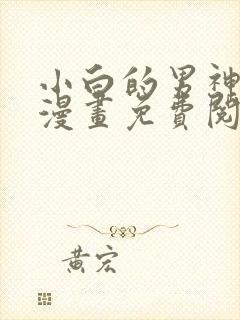 小白的男神
漫畫免費閱
黃宏